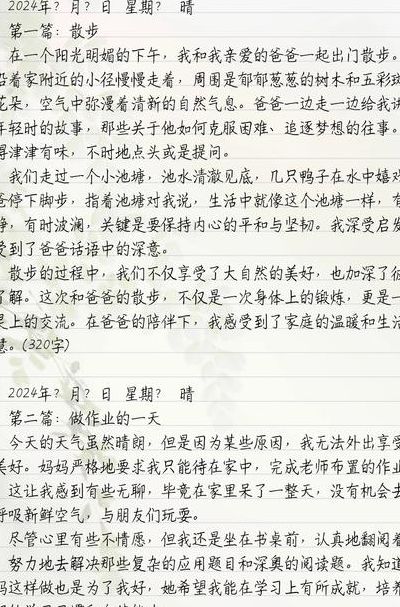 2024年？月？日 星期？ 晴
第一篇：散步
在一个阳光明媚的下午，我和我亲爱的爸爸一起出门散步。
沿着家附近的小径慢慢走着，周围是郁郁葱葱的树木和五彩斑
花朵，空气中弥漫着清新的自然气息。爸爸一边走一边给我讲
年轻时的故事，那些关于他如何克服困难、追逐梦想的往事。
得津津有味，不时地点头或是提问。
我们走过一个小池塘，池水清澈见底，几只鸭子在水中嬉戏
爸停下脚步，指着池塘对我说，生活中就像这个池塘一样，有
静，有时波澜，关键是要保持内心的平和与坚韧。我深受启发
受到了爸爸话语中的深意。
散步的过程中，我们不仅享受了大自然的美好，也加深了彼
了解。这次和爸爸的散步，不仅是一次身体上的锻炼，更是一
灵上的交流。在爸爸的陪伴下，我感受到了家庭的温暖和生活
慧。(320字)
2024年？月？日 星期？ 晴
第二篇：做作业的一天
今天的天气虽然晴朗，但是因为某些原因，我无法外出享受
美好。妈妈严格地要求我只能待在家中，完成老师布置的作业
这让我感到有些无聊，毕竟在家里呆了一整天，没有机会去
呼吸新鲜空气，与朋友们玩耍。
尽管心里有些不情愿，但我还是坐在书桌前，认真地翻阅着
努力地去解决那些复杂的应用题目和深奥的阅读题。我知道
妈这样做也是为了我好，她希望我能在学习上有所成就，培养